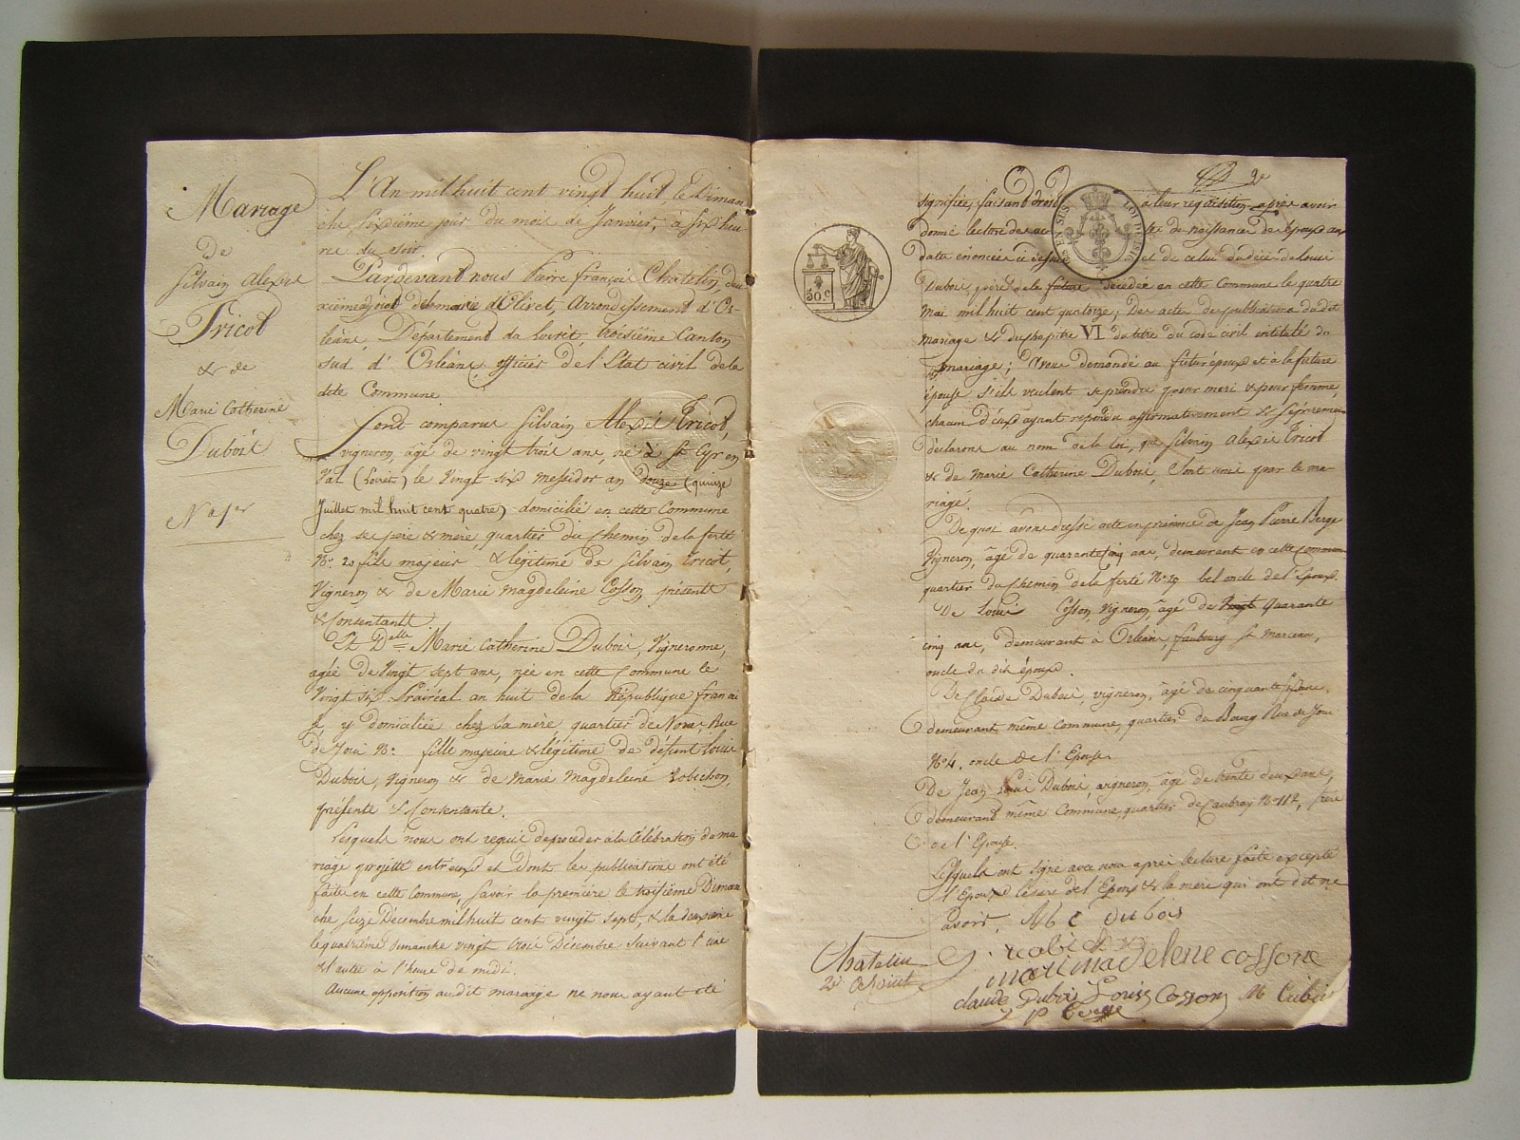 Mariage
de
Silvain Alexis
Tricot
& de
Marie Catherine
Dubois
N° 1er
L'An mil huit cent vingt huit, le Diman
che sixième jour du mois de Janvier, à six heu-
res du soir
Pardevant nous Pierre françois Chatelin, deu
xième adjoint de Mairie d'Olivet, Arrondissement d'Or-
léans, Département du Loiret, troisième Canton
sud d'Orléans, officier de l'Etat civil de la
dite Commune
Sont comparus Silvain Alexis Tricot,
vigneron, âgé de vingt trois ans, né à St Cyr en
Val (Loiret) le Vingt six messidor an douze (quinze
Juillet mil huit cent quatre) domicilié en cette Commune
chez ses père & mère, quartier du Chemin de la ferté
N° 20 fils majeur & légitime de Silvain Tricot,
Vigneron & de Marie Magdeleine Cosson, présents
& Consentants.
Et Delle Marie Catherine Dubois, Vigneronne,
agée de Vingt sept ans, née en cette Commune le
Vingt six Prairéal an huit de la République françai
se, y domiciliée chez sa mère quartier de Rue
de Joui N° fille majeure & légitime de défunt Louis
Dubois, Vigneron & de Marie Magdeleine Robichon,
présente & Consentante.
Lesquels nous ont requis de procéder à la Célébration du ma
riage projetté entr'eux et dont les publications ont été
faites en cette Commune, Savoir la première le troisième Diman
che seize Décembre mil huit cent vingt sept, & la deuxième
le quatrième dimanche vingt trois Décembre suivant l'une
& l'autre à l'heure de midi.
Aucune opposition au dit mariage ne nous ayant été
signifiée, faisant droit à leur réquisition après avoir
donné lecture des actes de naissance des Epoux aux
dates énoncées ci dessus et de celui du décès de Louis
Dubois, père de la future décédé en cette Commune le quatre
Mai mil huit cent quatorze, Des actes de publications du dit
mariage & du chapitre VI du titre du code civil intitulé du
mariage; Avons demandé au futur époux et à la future
épouse s'ils veulent se prendre pour mari & pour femme,
chacun d'eux ayant répondu affirmativement & séparément
déclarons au nom de la loi, que Silvain Alexis Tricot
& de Marie Catherine Dubois, Sont unis par le ma-
riage.
De quoi avons dressé acte en présence de Jean Pierre Berge
Vigneron, âgé de quarante cinq ans, demeurant en cette Commune
quartier du Chemin de la ferté N° 19 bel oncle de l'Epoux.
De Louis Cosson, Vigneron, âgé de Vingt Quarante
cinq ans, demeurant à Orléans, faubourg St Marceau,
oncle du dit époux.
De Claude Dubois, vigneron, âgé de cinquante
demeurant même commune, quartier du Bourg Rue de Joui
N° 4, oncle de l'Epouse.
De Jean Louis Dubois, vigneron, âgé de trente deux ans,
demeurant même Commune, quartier de Caubray N° 112, frère
de l'Epouse.
Lesquels ont signé avec nous après lecture faite excepté
l'Epoux le père de l'Epoux & la mère qui ont dit ne
savoir. M C Dubois
Chatelin
2e Adjoint
mari madelene cosson
claude Dubois Louis Cosson
J P Berge
30 C